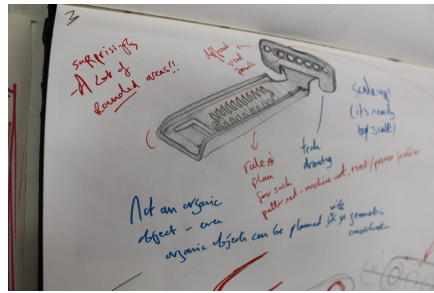 surprisingly
A lot of
rounded areas!!
different
sized
scale up!
(it's nearly
top scale)
tech
drawing
rule &
plan
for such
patterned - machine cut, exact/precise features
Not an organic
object - even
organic objects can be planned with geometric
construction